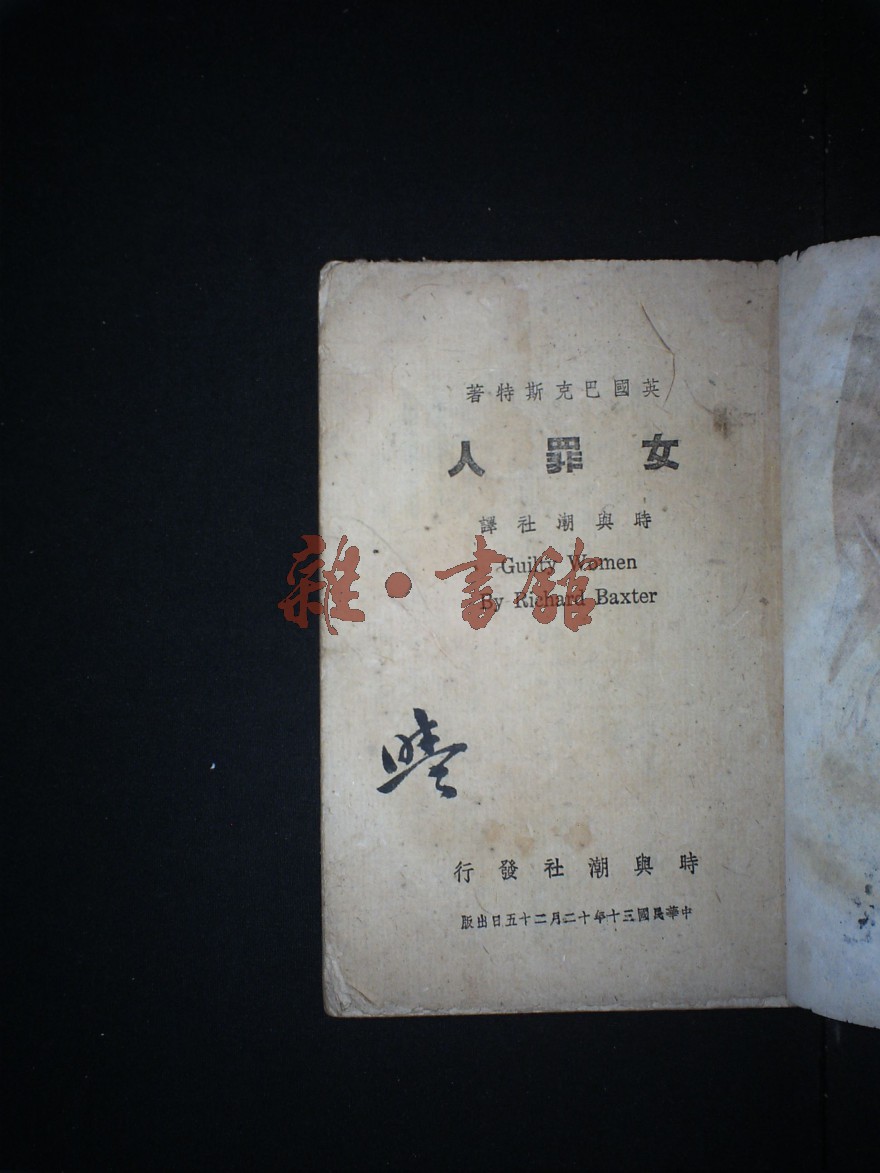 英國巴克斯特著
女罪人
時與潮社譯
Guilty Women
By Richard Baxter
雜·書館
時與潮社發行
中華民國三十年十二月二十五日出版